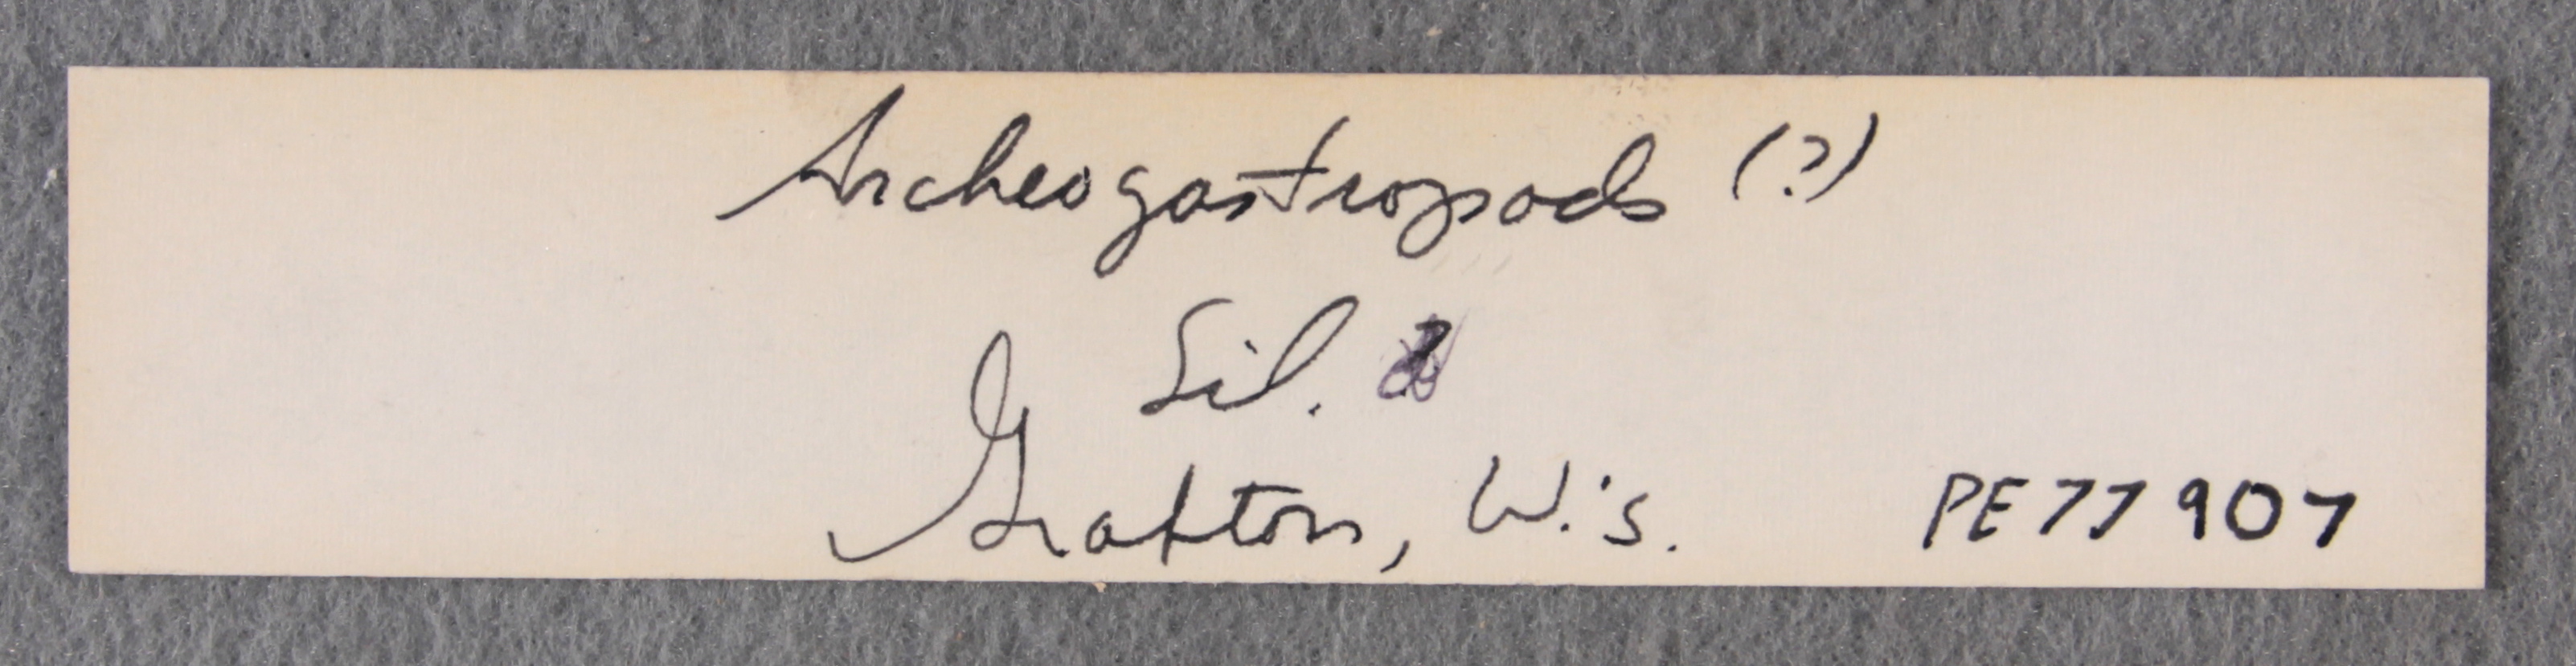 Archeogastropods (?)
Sil.
Grafton, Wis.
PE77907